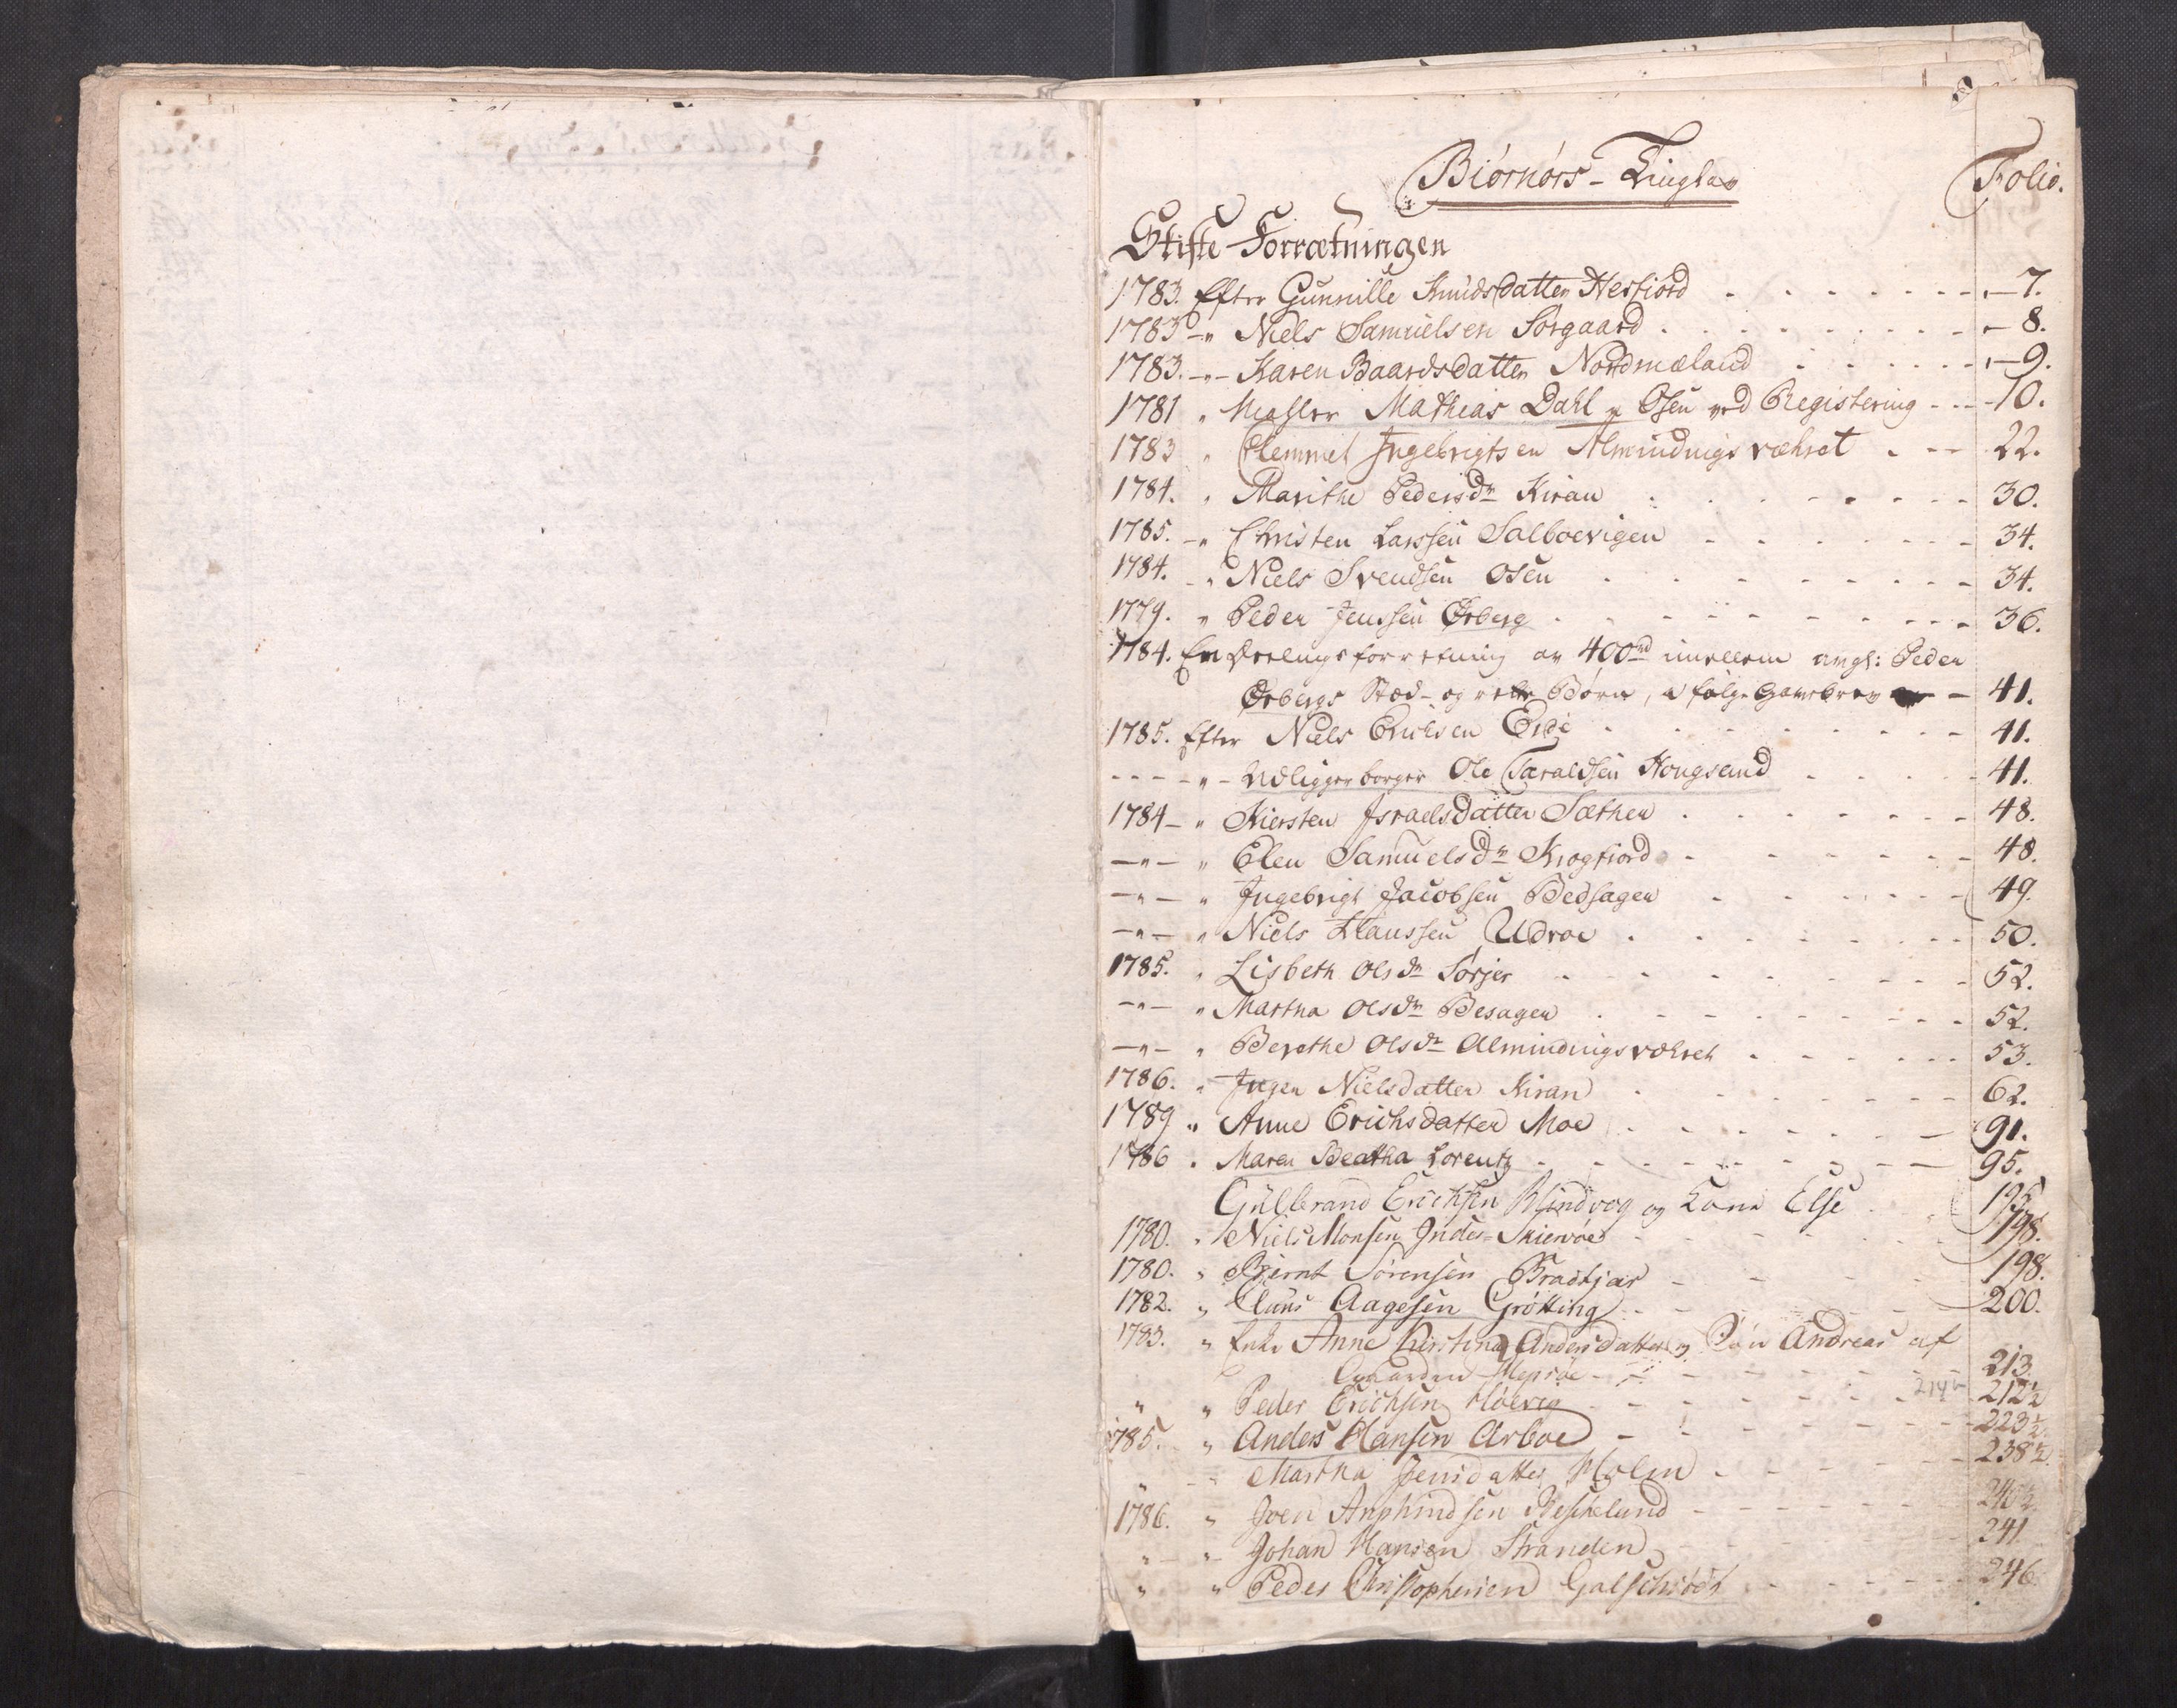 Biørnørs-Tinglav
Folio.
Skifte-Forrætningen
1783. Efter Gunnille Knudsdatter Hesfiord - 7.
1783 -"- Niels Samuelsen Sørgaard - 8.
1783. -"- Karen Baardsdatter Nordmæland - 9.
1781 " Mathias Dahl Osen ved Registering - 10.
1783 " Clemmet Ingebrigtsen Almindingsværet - 22.
1784. " Marithe Pedersdr Kiran - 30.
1785. -" Christen Larssen Salboevigen - 34.
1784. -" Niels Svendsen Osen - 34.
1779. " Peder Jenssen Ørberg - 36.
1784. En Deelingsforretning av 400rd imellem Peder
Ørbergs Stæd- og Børn, a følge Gavebrev - 41.
1785. Efter Niels Erichsen Eide - 41.
- - - -"- Udliggerborger Ole Taraldsen Hougsand - 41.
1784 - " Kiersten Israelsdatter Sæther - 48.
-"- " Elen Samuelsdr Krogfiord - 48.
-"- " Ingebrigt Jacobsen Bedsagen - 49.
-"- " Niels Klaussen Udroe - 50.
1785. " Lisbeth Olsdr Sørjer - 52.
-"- " Martha Olsdr Besagen - 52.
-"- " Berethe Olsdr Almindingsværet - 53.
1786. " Inger Nielsdatter Kiran - 62.
1789 " Anne Erichsdatter Moe - 91.
1786 " Maren Beatha Lorentz - 95.
Gulbrand Erichsen og Kone Else 195
1780. " Niels Monsen Indre-Skiervøe - 198.
1780. " Bernt Sørensen Bradtjær - 198.
1782. " Claus Aagesen Grøtting - 200.
1783. " Enke Anne Kirstina Andersdatter og Søn Andreas af
- 213.
" " Peder Erichsen Høevig - 214 212½
1785. " Anders Hansen Arboe - 223½
" - Martha Jensdatter Holm - 238½.
1786. " Joen Anphindsen Beskelund - 240½.
" - " - Johan Hansen Stranden - 241.
" " Peder Christophersen Galschiødt - 246.